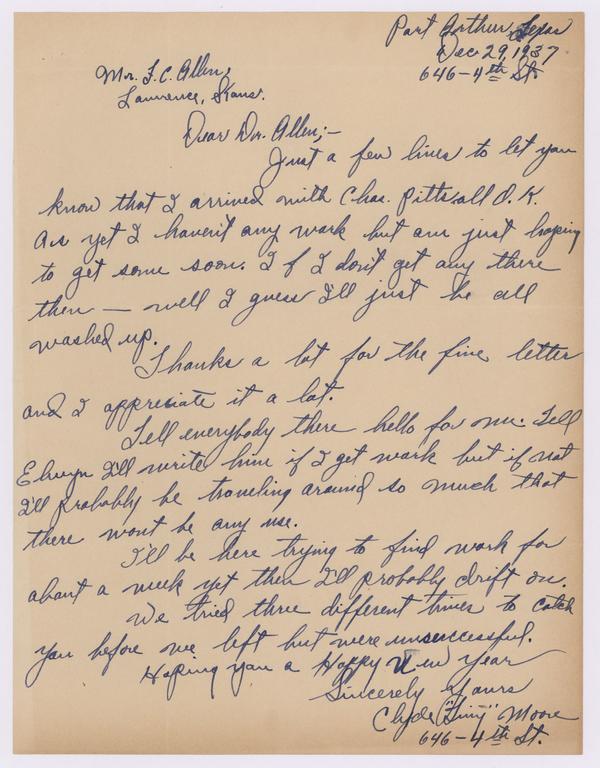 Port Arthur, Texas
Dec 29, 1937
646-4th St.
Mr. F. C. Allen,
Lawrence, Kans.
Dear Dr. Allen;-
Just a few lines to let you
know that I arrived with Chas. Pitts all O.K.
As yet I haven't any work but am just hoping
to get some soon. If I don't get any there
then — well I guess I'll just be all
washed up.
Thanks a lot for the fine letter
and I appreciate it a lot.
Tell everybody there hello for me. Tell
Elwyn I'll write him if I get work but if not
I'll probably be traveling around so much that
there wont be any use.
I'll be here trying to find work for
about a week yet then I'll probably drift on.
We tried three different times to catch
you before we left but were unsuccessful.
Hoping you a Happy New Year
Sincerely Yours
Clyde "Tiny" Moore
646-4th St.